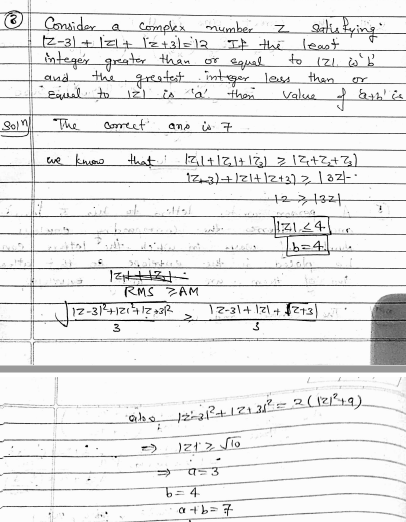 ③ Consider a complex number Z satisfying
|Z-3| + |Z| + |Z+3| = 12 If the least
integer greater than or equal to |Z| is 'b'
and the greatest integer less than or
equal to |Z| is 'a' then value of 'a+b' is
Solⁿ The correct ans is 7
we know that |Z₁|+|Z₂|+|Z₃| ≥ |Z₁+Z₂+Z₃|
|Z-3|+|Z|+|Z+3| ≥ |3Z|
12 ≥ |3Z|
|Z| ≤ 4
b = 4
RMS ≥ AM
√|Z-3|²+|Z|²+|Z+3|² / 3 ≥ |Z-3|+|Z|+|Z+3| / 3
also, |Z-3|²+|Z+3|² = 2(|Z|²+9)
⇒ |Z| ≥ √10
⇒ a = 3
b = 4
a+b = 7